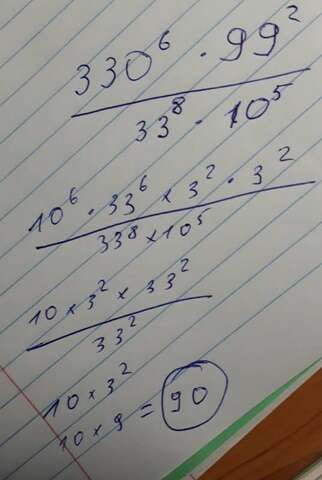 330⁶ · 99²
33⁸ · 10⁵
10⁶ · 33⁶ × 3² · 3²
33⁸ × 10⁵
10 × 3² × 33²
33²
10 × 3²
10 × 9 = 90